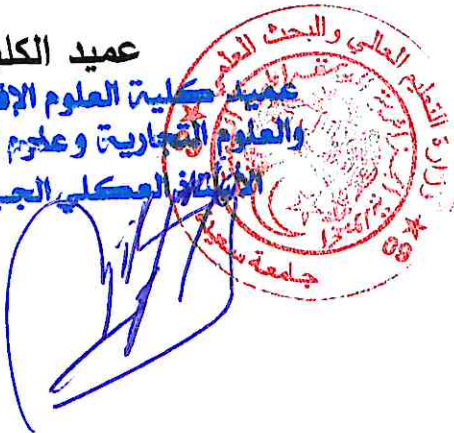 عميد الكلي
عميد كلية العلوم الإق
والعلوم التجارية وعلوم
الأستاذ العكلي الجي
وزارة التعليم العالي والبحث العلمي
جامعة سعيدة
09